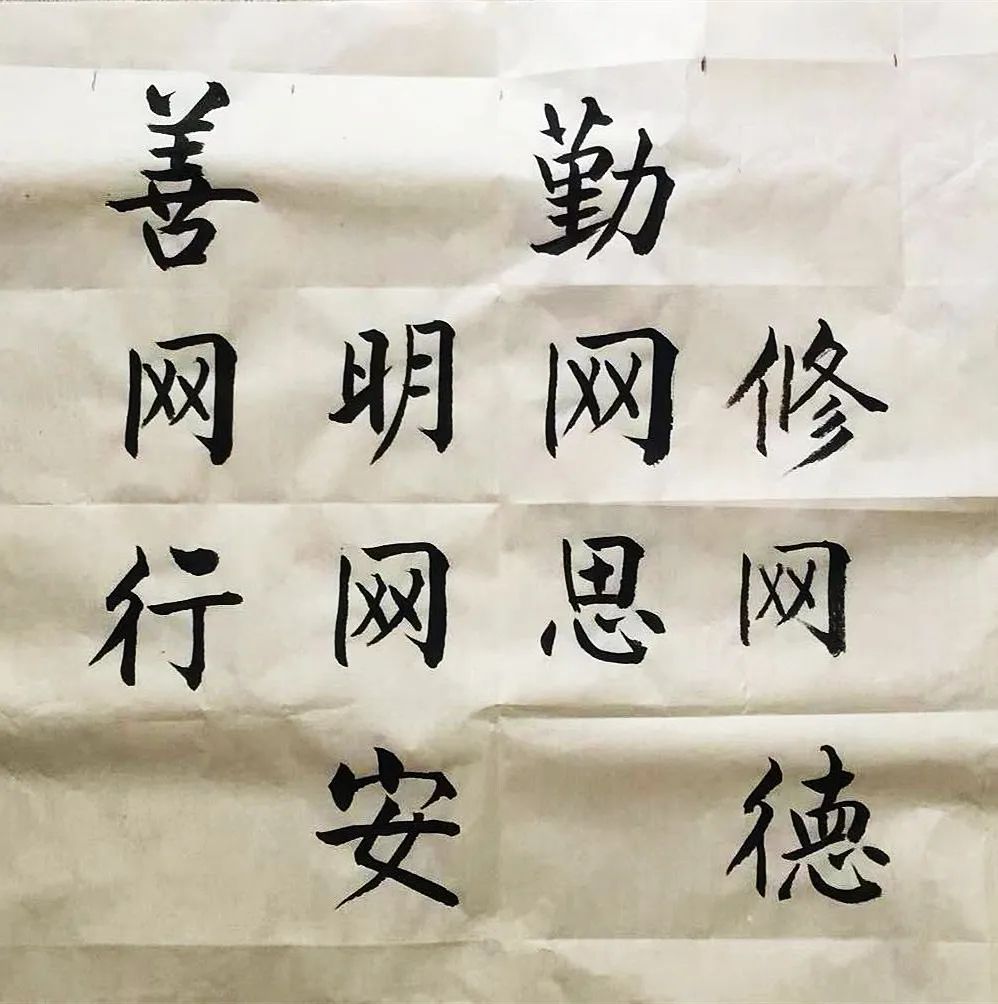 修网德
勤网思
明网安
善网行